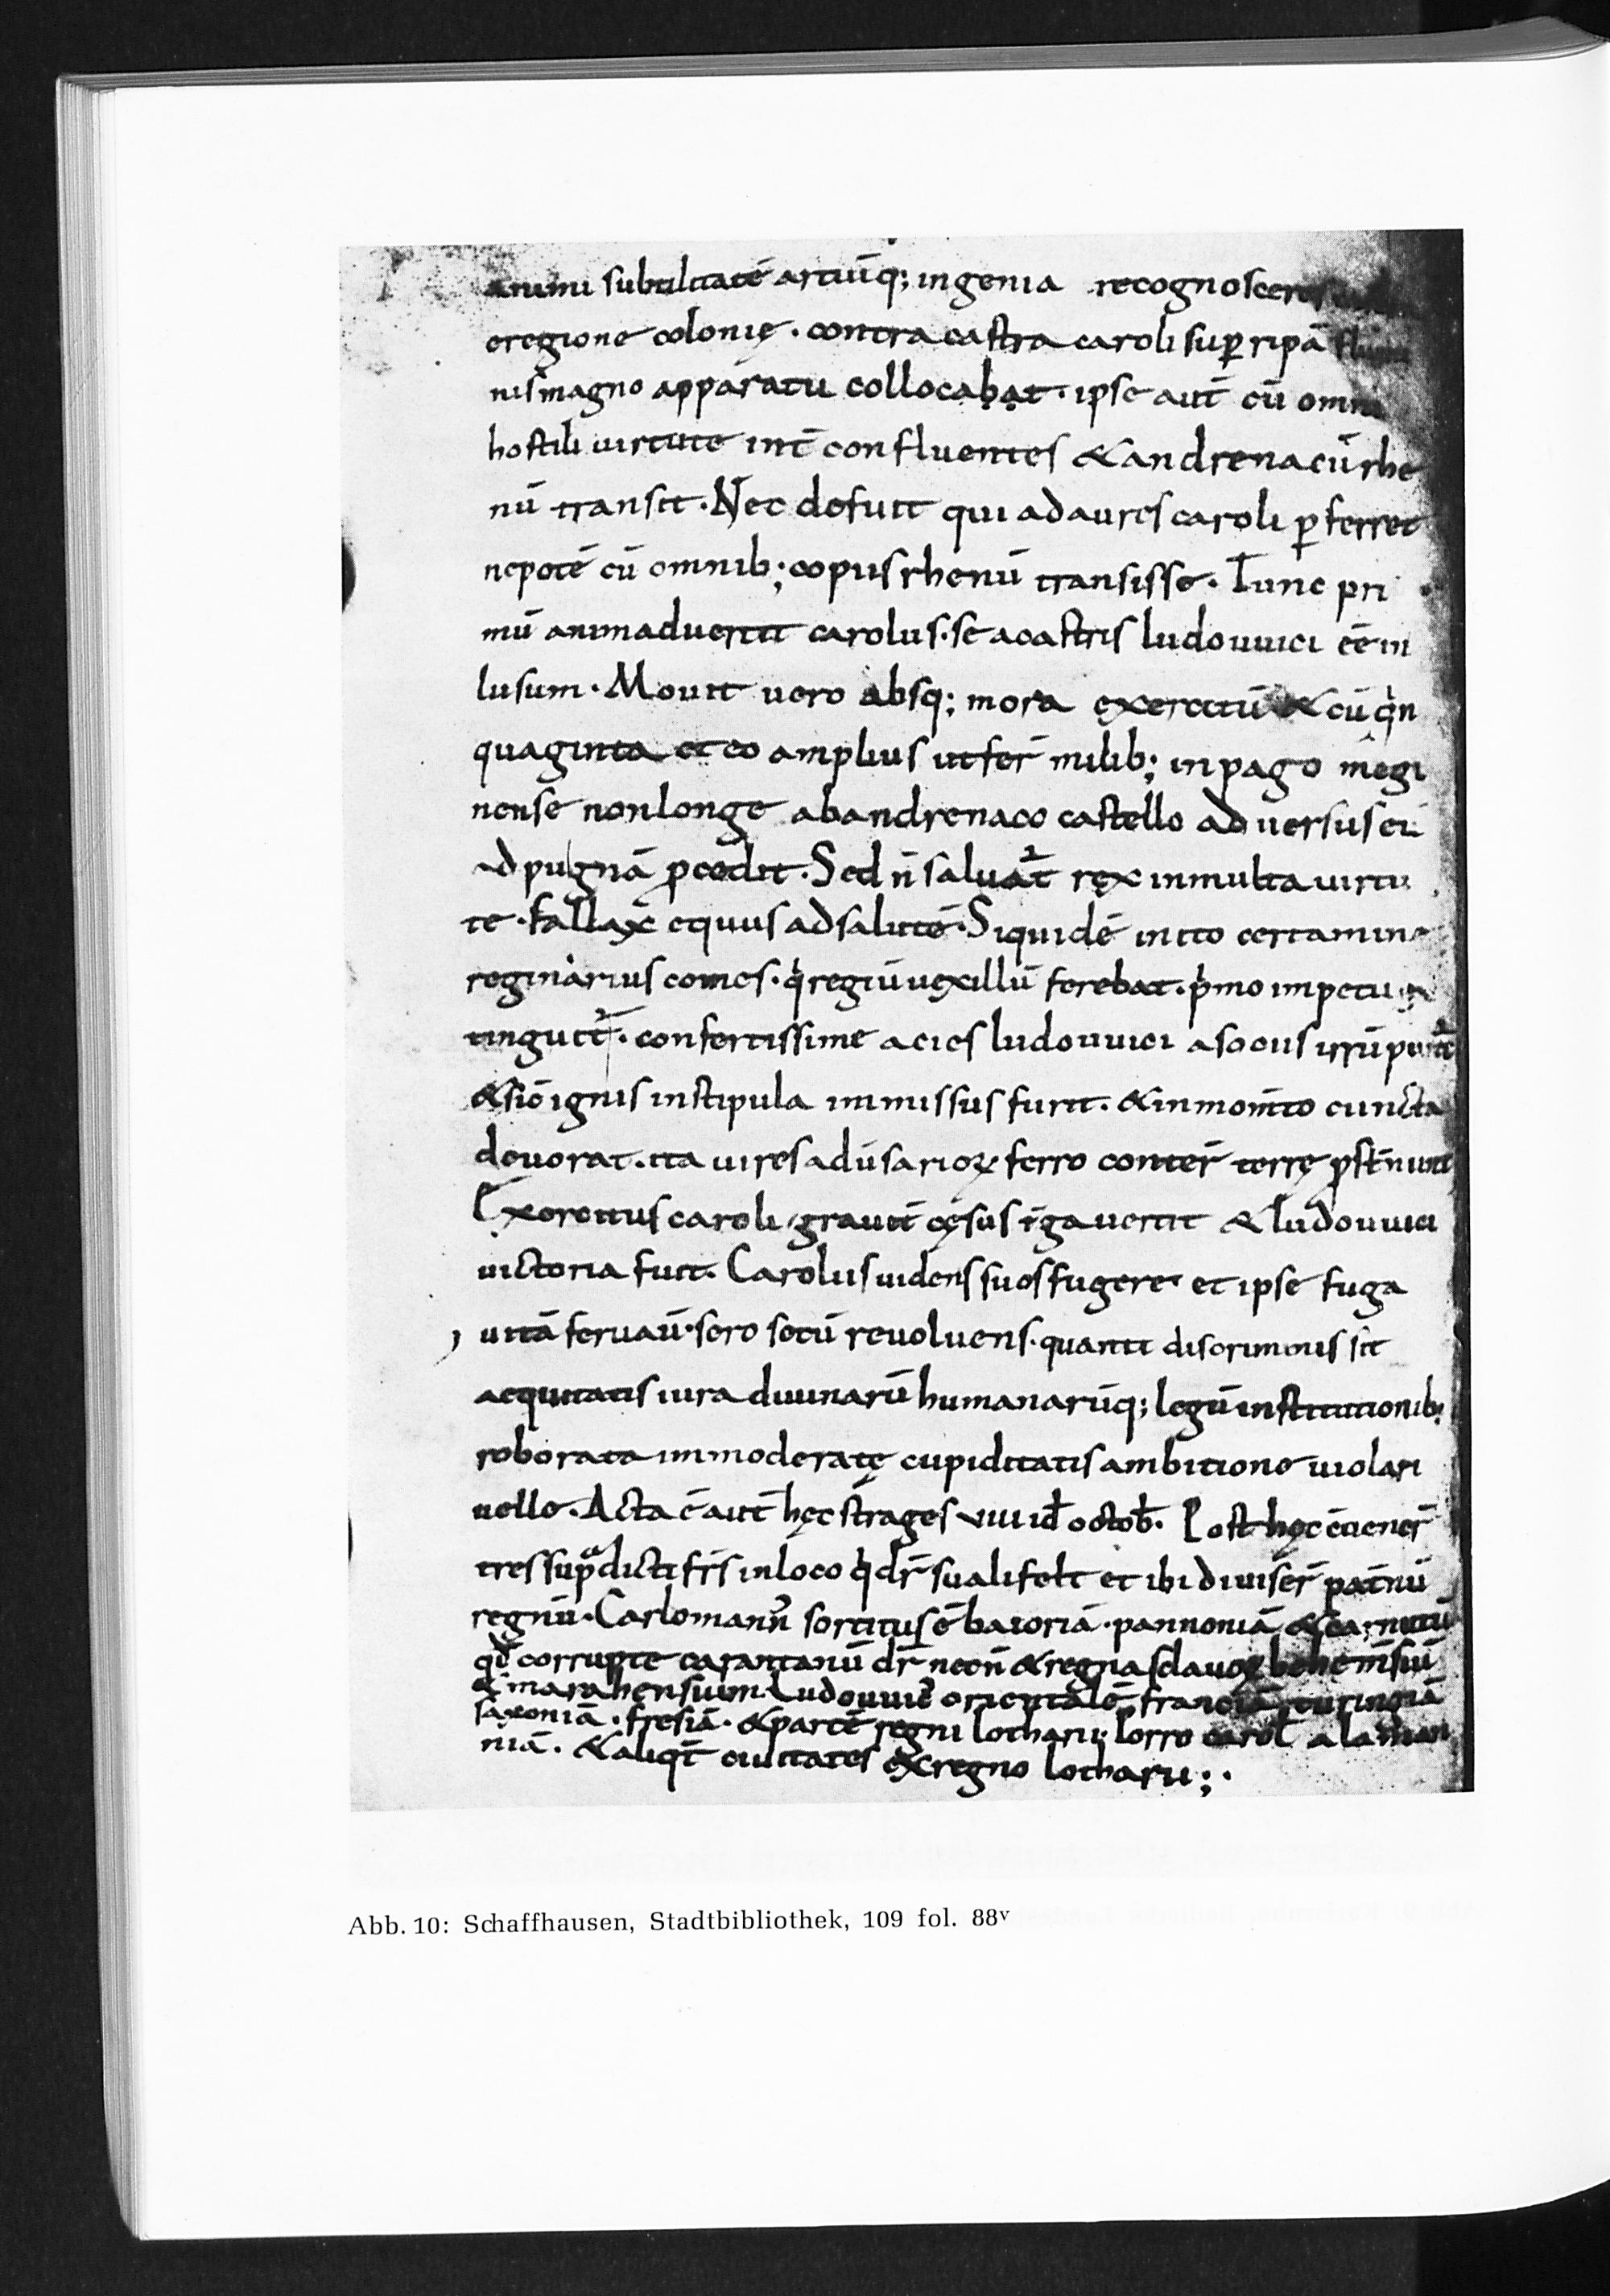 animi subtilitatē artiūq; ingenia recognosceres
eregione colonię · contra castra caroli sup ripā flumi
nis magno apparatu collocabat · ipse aut̄ cū omni
hostili uirtute int̄ confluentes & andrenacū rhe
nū transit · Nec defuit qui ad aures caroli ꝑferret
nepotē cū omnib; copiis rhenū transisse · Tunc pri
mū animaduertit carolus · se a castris ludouuici eē in
lusum · Mouit uero absq; mora exercitū & cū qin
quaginta et eo amplius ut fer̄ milib; in pago megi
nense non longe ab andrenaco castello aduersus eū
ad pugnā ꝓcedit · Sed n̄ saluat̄ rex in multa uirtu
te · fallax equus ad salutē · Siquidē inito certamine
reginarius comes · qi regiū uexillū ferebat · pimo impetu ex
tinguit̄ · confertissime acies ludouuici a sociis irrūpunt̄
& sic̄ ignis in stipula immissus furit · & in mom̄to cuncta
deuorat · ita uires adūsarioꝝ ferro conter̄ terrę ꝓst̄nunt
Exercitus caroli grauit̄ cęsus t̄ga uertit & ludouuici
uictoria fuit · Carolus uidens suos fugere et ipse fuga
uitā seruau̅ · sero secū reuoluens · quanti discriminis sit
aequitatis iura diuinarū humanarūq; legū institutionib;
roborata immoderatę cupiditatis ambitione uiolari
uelle · Acta ē aut̄ hęc strages uiii id octob̄ · Post hęc c̄uener̄
tres supᵃdicti fr̄s in loco qi dr̄ sualifelt et ibi diuiser̄ pat̄nū
regnū · Carlomann᾽ sortitus ē baioriā · pannoniā & carnutū
qd̄ corrupte carantanū dr̄ necn̄ & regna sclauoꝝ behemi͞siū
& marahensium · Ludouuic᾽ orientalē franciā turingiā
saxoniā · fresiā · & partē regni lotharii · Porro carol᾽ alaman
niā · & aliqt̄ ciuitates ex regno lotharii ; ·
Abb. 10: Schaffhausen, Stadtbibliothek, 109 fol. 88ᵛ